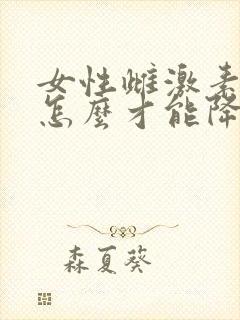 女性雌激素
怎麼才能降
森夏葵